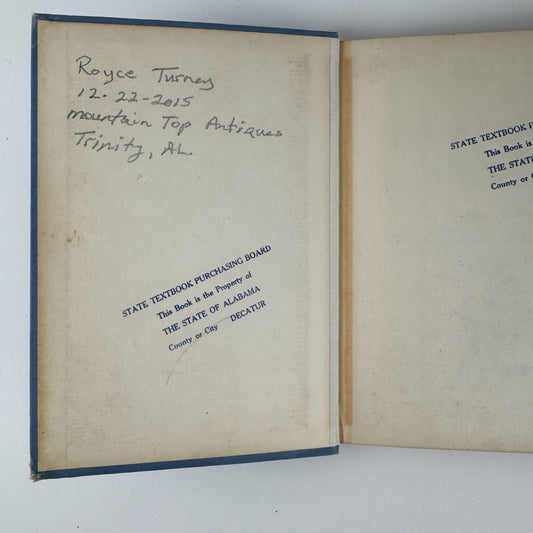 Royce Turney
12-22-2015
mountain Top Antiques
Trinity, AL.
STATE TEXTBOOK PURCHASING BOARD
This Book is the Property of
THE STATE OF ALABAMA
County or City DECATUR
STATE TEXTBOOK P
This Book is
THE STATE
County or